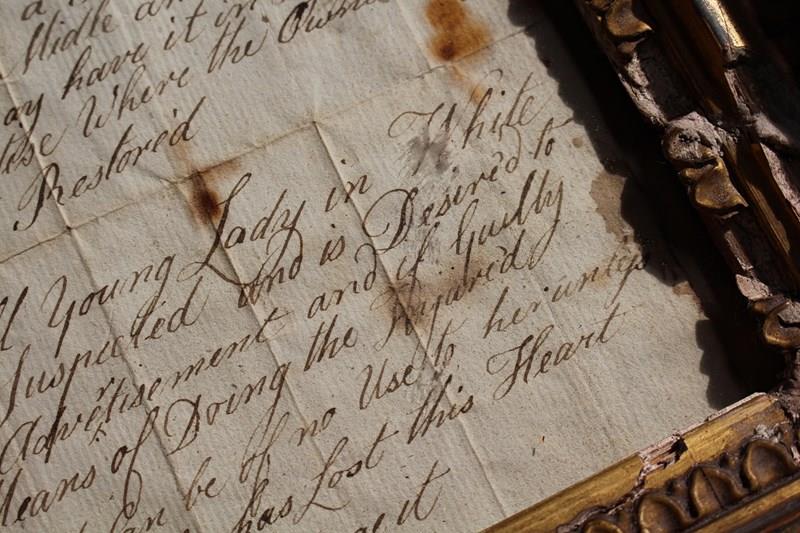 Midle
ay have it in
Where the Owne
Restored
Young Lady in White
Suspected and is Desired to
Advertisement and if Guilty
Means of Doing the Injured
Can be of no Use to her
has Lost this Heart
it